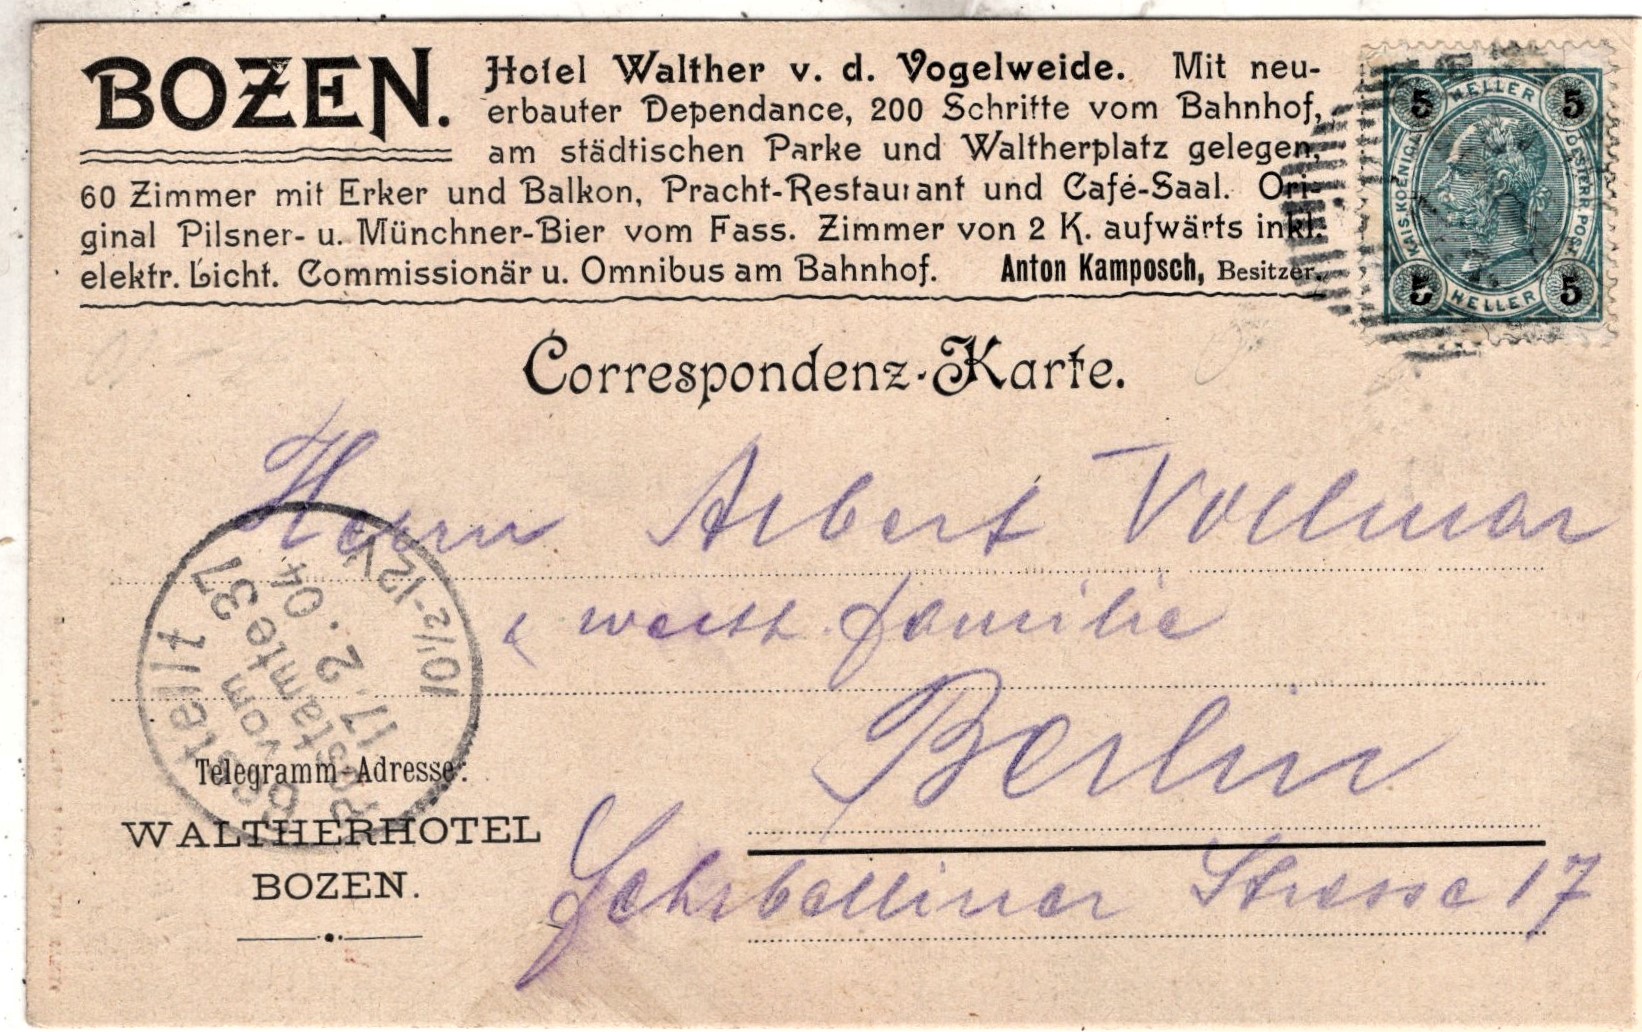 BOZEN.
Hotel Walther v. d. Vogelweide. Mit neu-
erbauter Dependance, 200 Schritte vom Bahnhof,
am städtischen Parke und Waltherplatz gelegen,
60 Zimmer mit Erker und Balkon, Pracht-Restaurant und Café-Saal. Ori-
ginal Pilsner- u. Münchner-Bier vom Fass. Zimmer von 2 K. aufwärts inkl.
elektr. Licht. Commissionär u. Omnibus am Bahnhof. Anton Kamposch, Besitzer.
5 HELLER 5
KAIS. KOENIGL. OESTERR. POST
5 HELLER 5
Correspondenz-Karte.
Herrn Albert Vollmar
& werth. Familie
Berlin
Fehrbelliner Strasse 17
Bestellt
vom
Postamte 37
17. 2. 04
10 1/2-12V
Telegramm-Adresse:
WALTHERHOTEL
BOZEN.